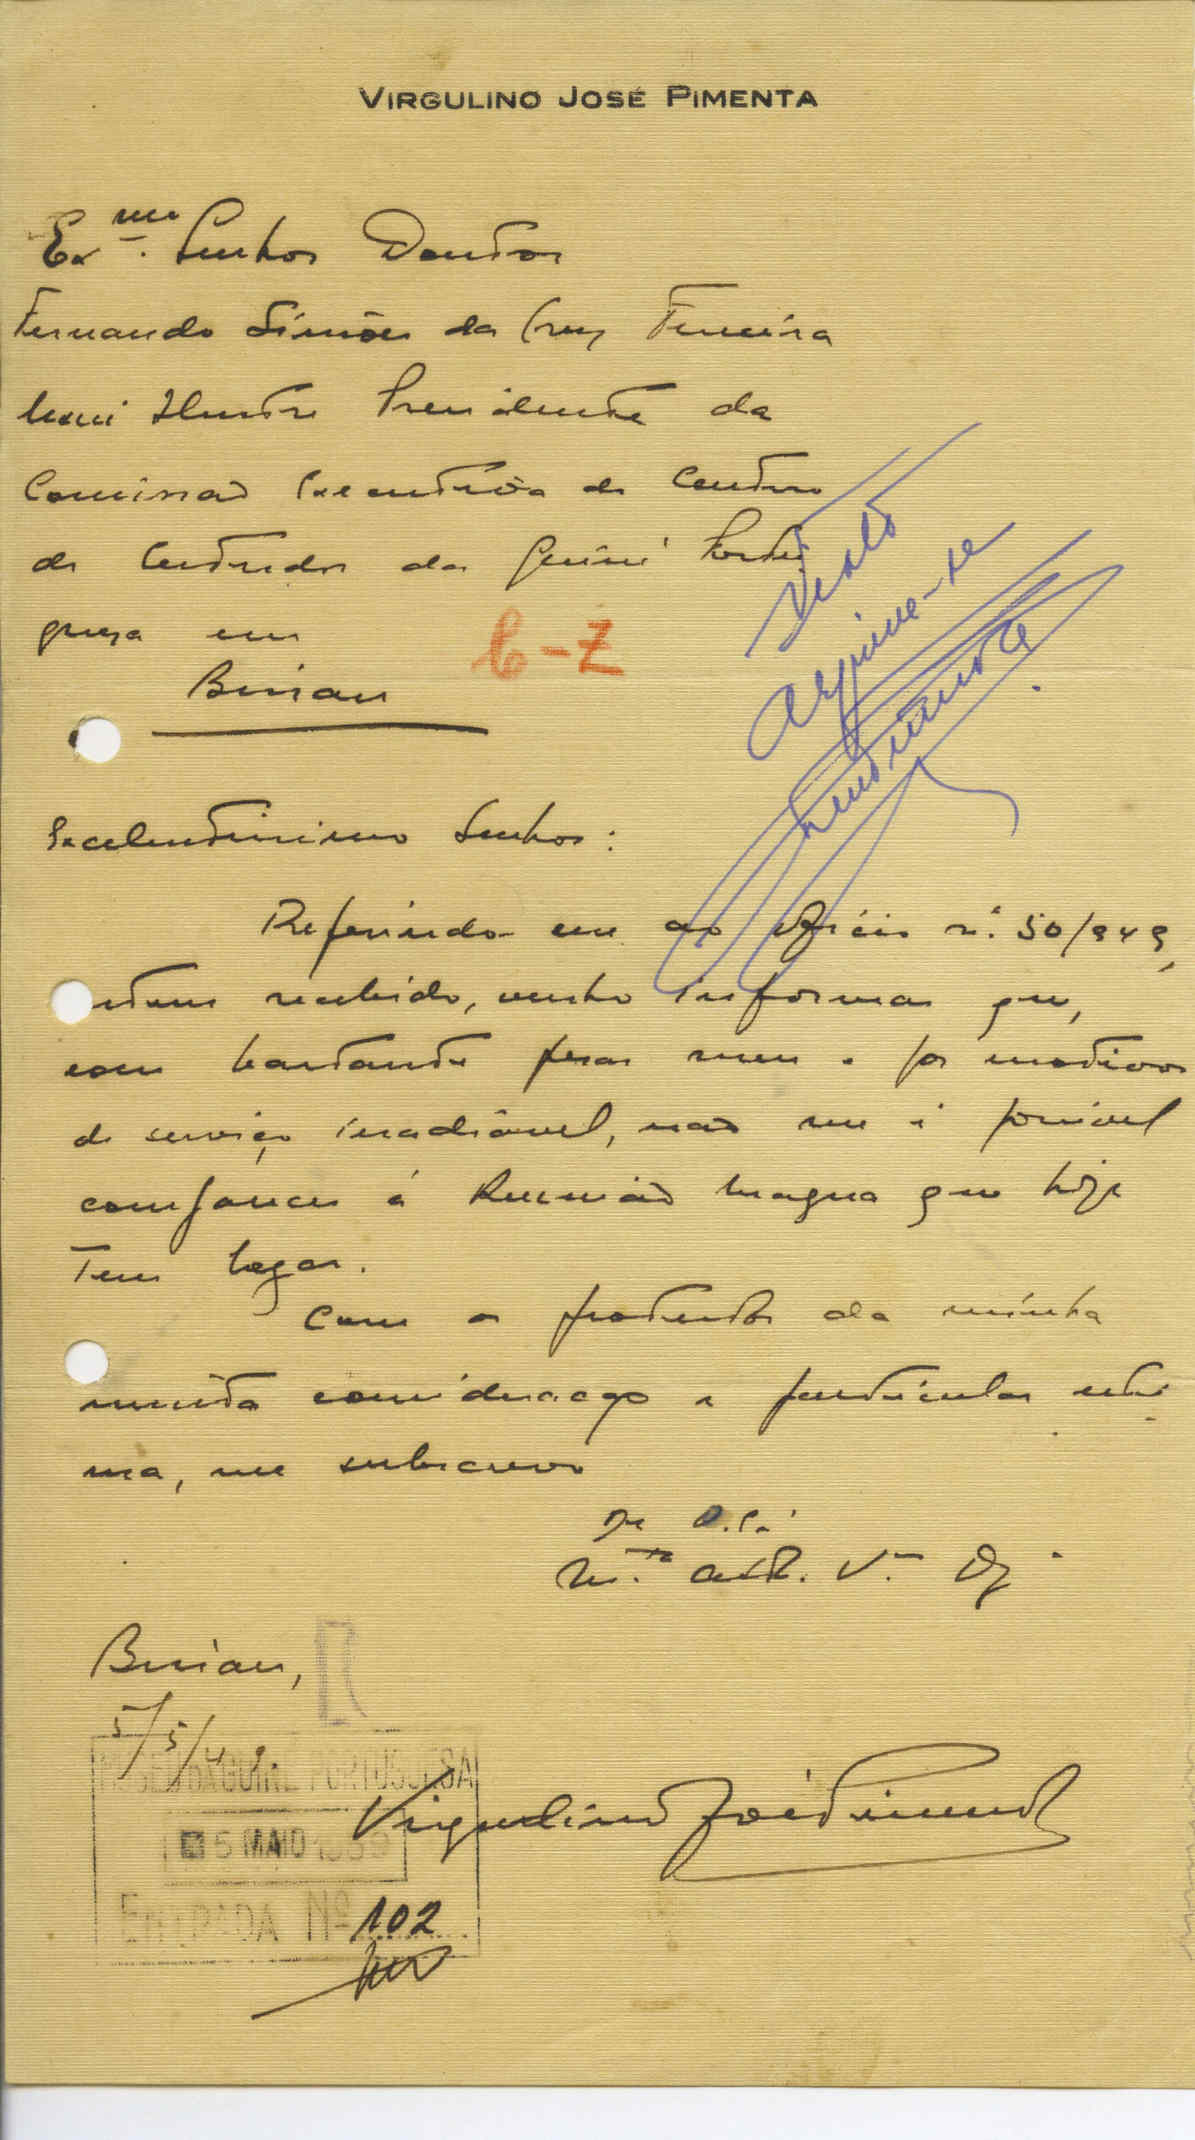 VIRGULINO JOSÉ PIMENTA
Exmo. Senhor Doutor
Fernando Simões da Cruz Ferreira
Mui Ilustre Presidente da
Comissão Executiva do Centro
de Estudos da Guiné Portu
guesa em
Bissau
C-Z
Visto
Arquive-se
Excelentíssimo Senhor:
Referindo-me ao ofício n.º 50/949,
recebido, venho informar que,
com bastante pesar meu e por motivos
de serviço inadiável, não me é possível
comparecer á Reunião magna que hoje
tem logar.
Com os protestos da minha
muita consideração e particular esti
ma, me subscrevo
De V.
Bissau,
5/5/49
MUSEU DA GUINÉ PORTUGUESA
5 MAIO
ENTRADA Nº 102
Virgulino José Pimenta